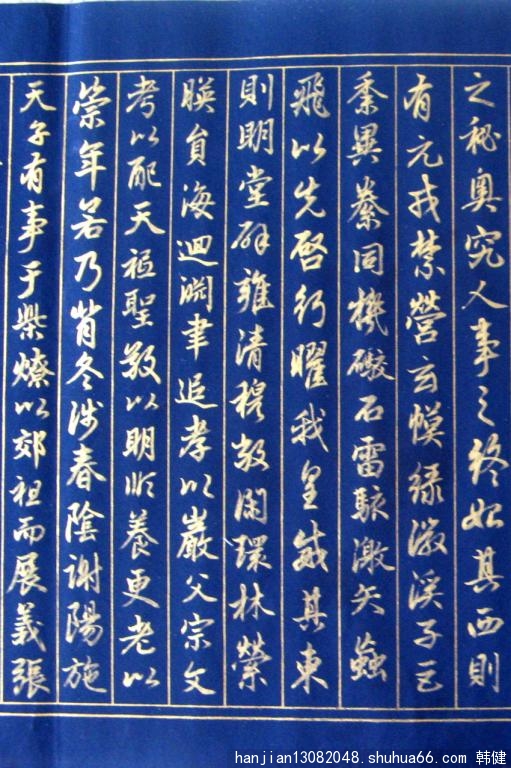 之秘奥究人事之終始其西則
有元戎禁營玄幙緑徽溪子巨
黍異絭同機礮石雷駭激矢䖟
飛以先啓行曜我皇威其東
則明堂辟雍清穆敞閑環林縈
暎員海迴淵聿追孝以嚴父宗文
考以配天祗聖敬以明順養更老以
崇年若乃背冬涉春陰謝陽施
天子有事于柴燎以郊祖而展義張
hanjian13082048.shuhua66.com 韩健